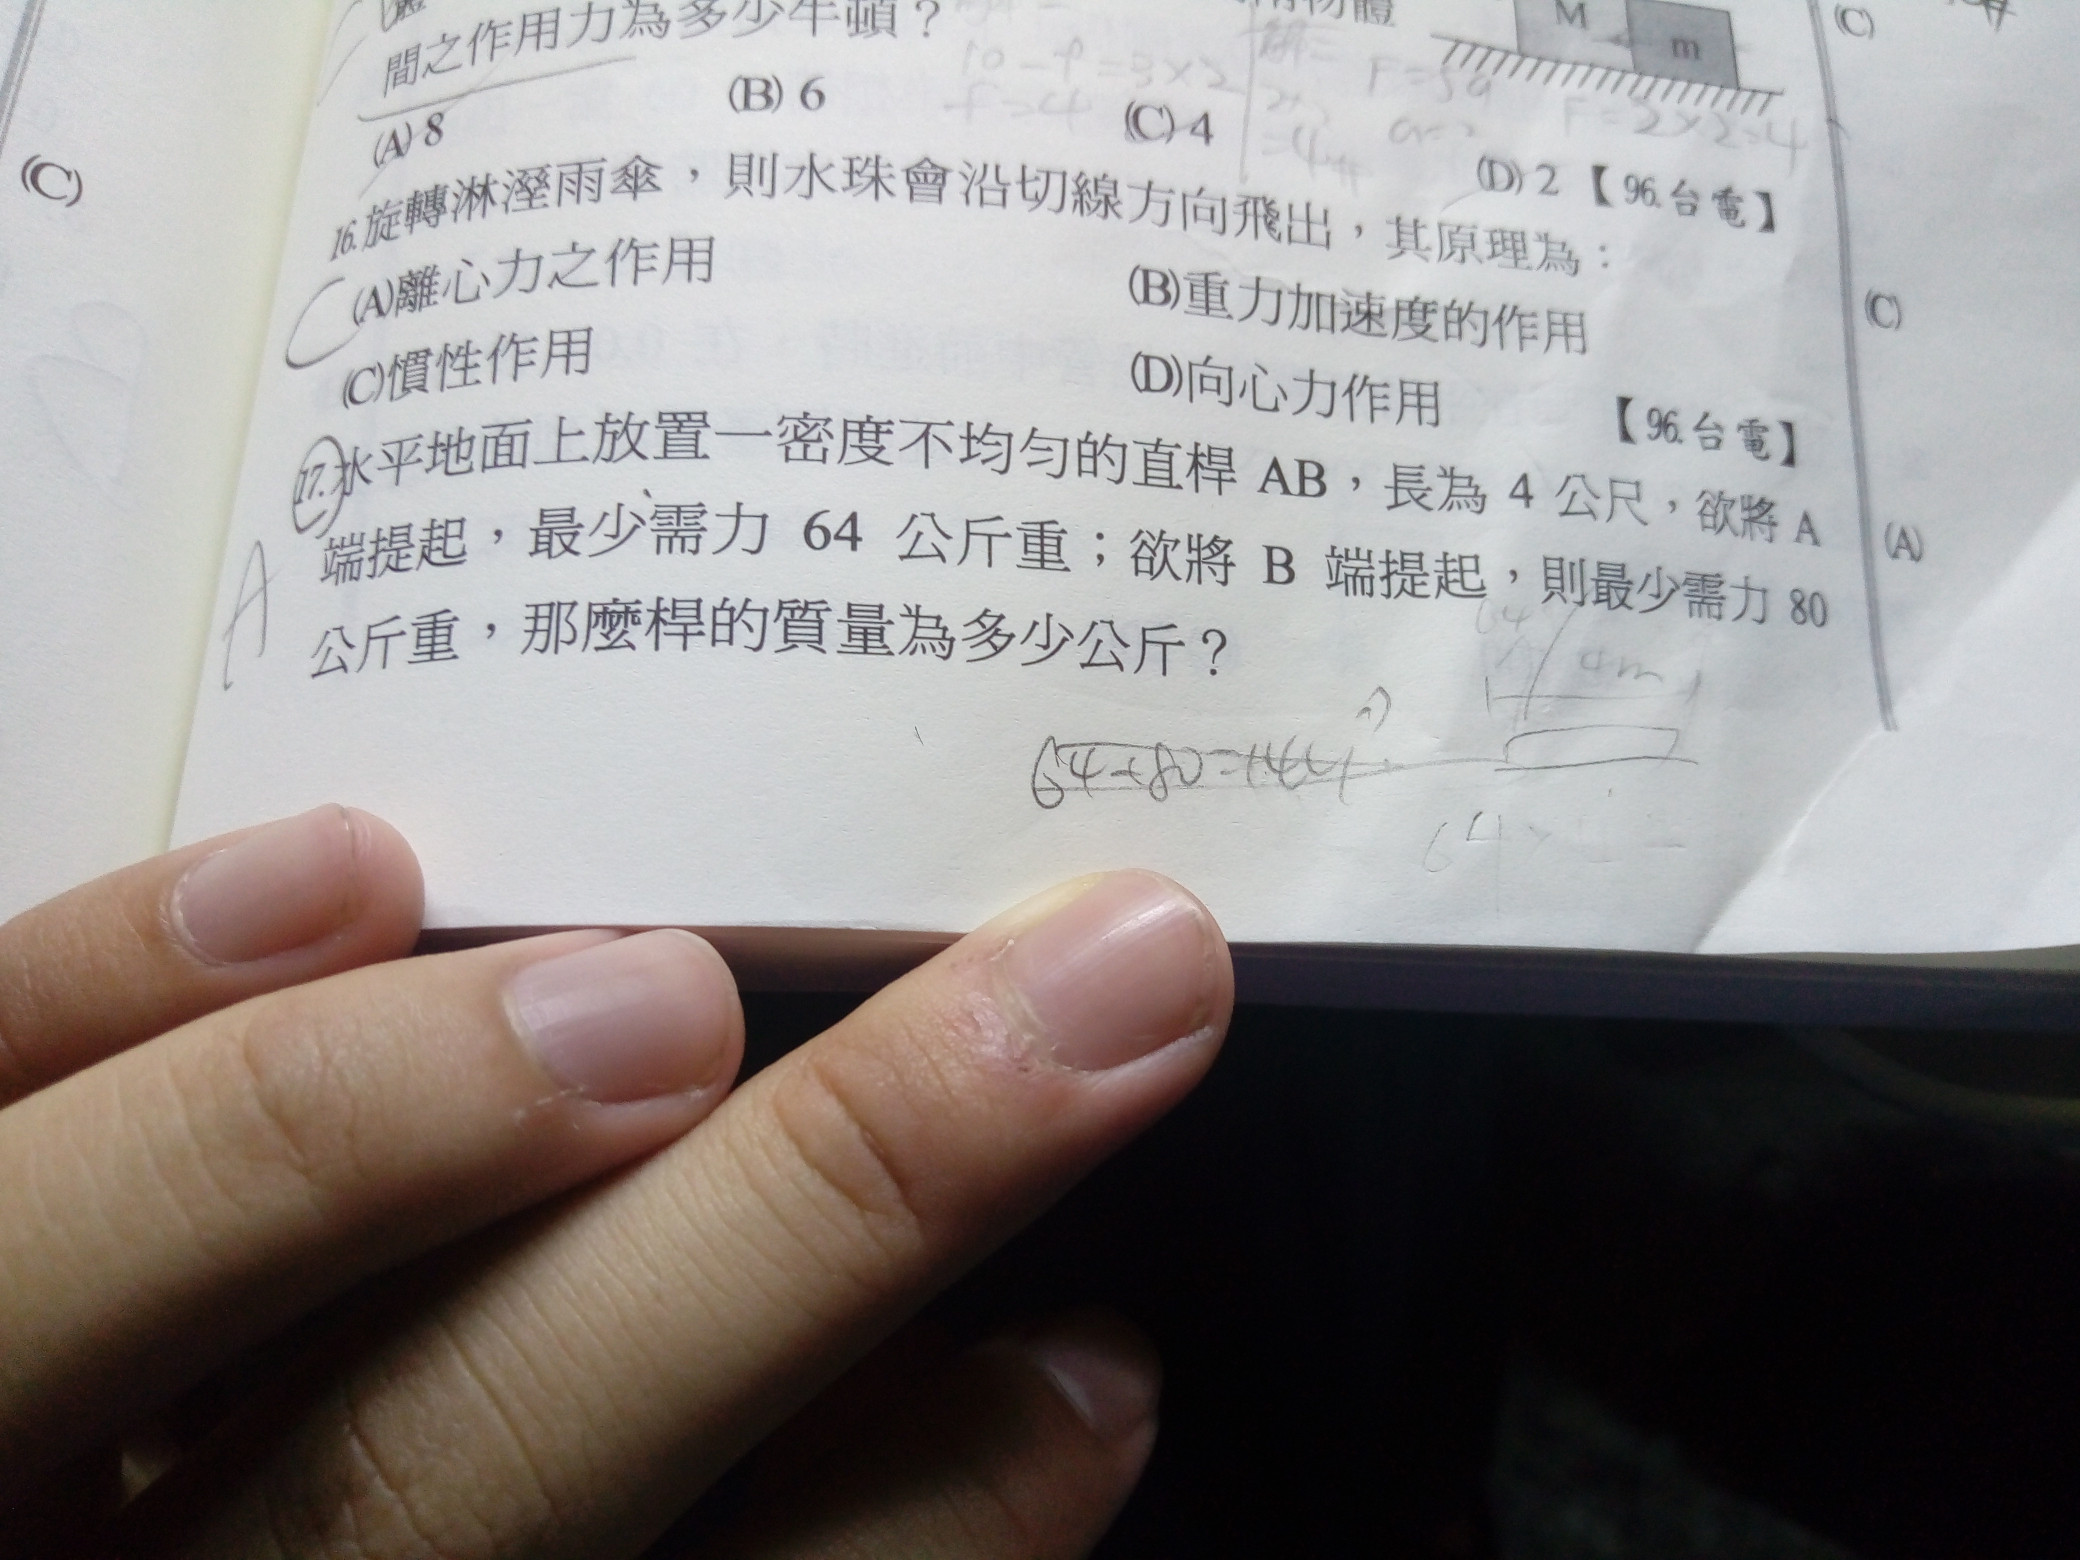 間之作用力為多少牛頓？
(A) 8 (B) 6 (C) 4 (D) 2 【96.台電】
M
m
10 - f = 3×2
f = 4
F = 5a
F = 2×2=4
16.旋轉淋溼雨傘，則水珠會沿切線方向飛出，其原理為：
(A)離心力之作用 (B)重力加速度的作用
(C)慣性作用 (D)向心力作用 【96.台電】
C
17.水平地面上放置一密度不均勻的直桿 AB，長為 4 公尺，欲將 A
端提起，最少需力 64 公斤重；欲將 B 端提起，則最少需力 80
公斤重，那麼桿的質量為多少公斤？
A
64
4m
64+80=144
(C)
(C)
(C)
(A)